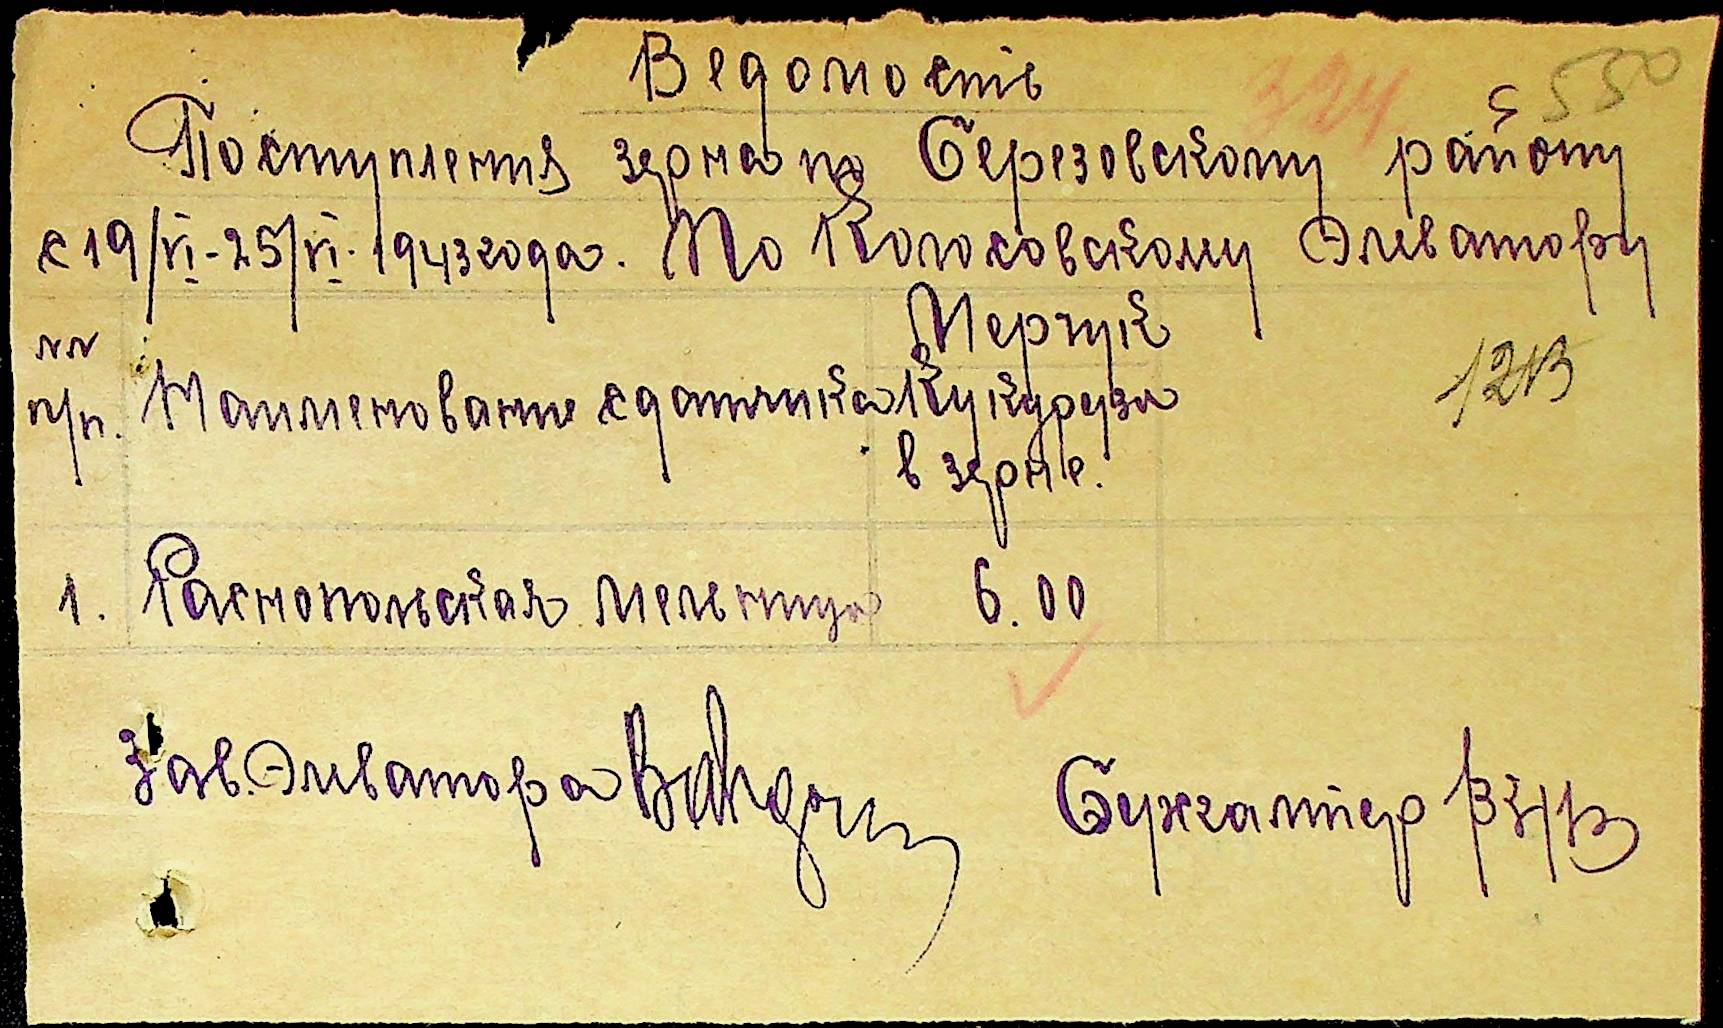 Ведомость
324
с 550
Поступления зерна по Березовскому району
с 19/VI-25/VI-1943 года. По Колосовскому Элеватору
№№
п/п.
Наименование сдатчика
Мерчук
Кукуруза
в зерне.
1. Раснопольская мельница 6.00
Зав. Элеватора
Бухгалтер